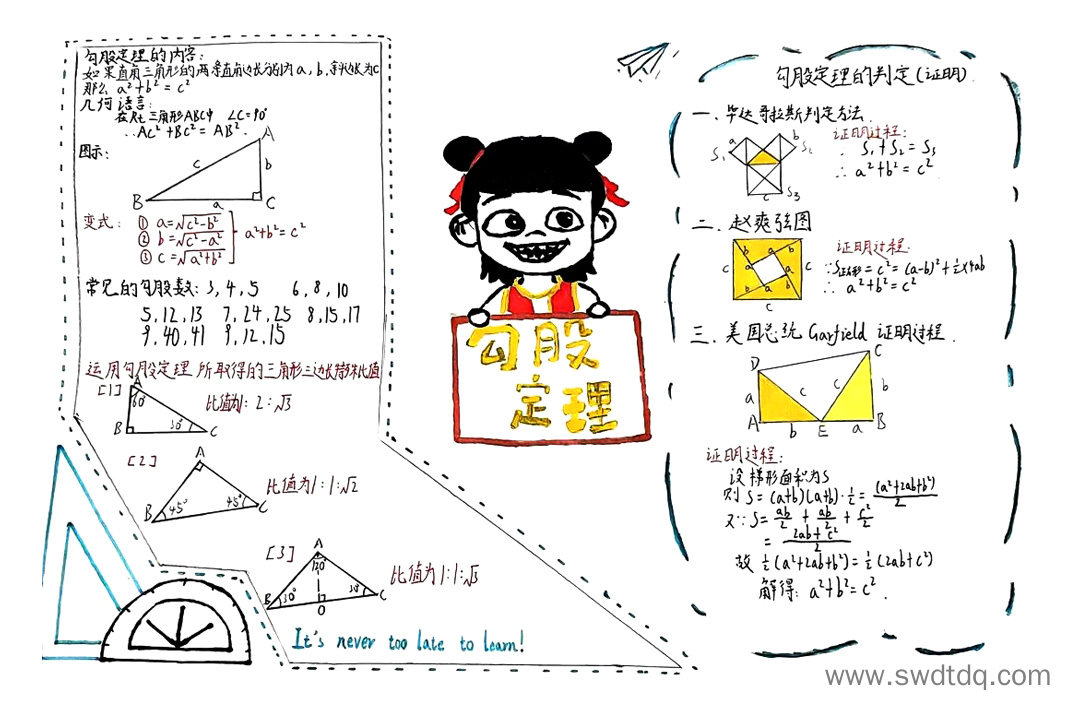 勾股定理的内容:
如果直角三角形的两条直角边长分别为a,b,斜边长为c
那么 a²+b²=c²
几何语言:
在Rt三角形ABC中 ∠C=90°
∴AC²+BC²=AB².
图示:
A
c
b
B
a
C
变式: ① a=√c²-b²
② b=√c²-a²
③ c=√a²+b²
a²+b²=c²
常见的勾股数: 3,4,5 6,8,10
5,12,13 7,24,25 8,15,17
9,40,41 9,12,15
运用勾股定理所取得的三角形三边长特殊比值
[1]
A
60°
B
30°
C
比值为1:2:√3
[2]
A
B
45°
45°
C
比值为1:1:√2
[3]
A
120°
B
30°
O
30°
C
比值为1:1:√3
It's never too late to learn!
勾股
定理
勾股定理的判定(证明).
一.毕达哥拉斯判定方法.
a
b
S₁
S₂
S₃
c
证明过程:
∵ S₁+S₂=S₃
∴ a²+b²=c²
二.赵爽弦图
b
a
b
c
a
a
c
b
a
b
c
证明过程:
∵S正方形=c²=(a-b)²+½×4ab
∴ a²+b²=c²
三.美国总统 Garfield 证明过程.
D
C
a
c
c
b
A
b
E
a
B
证明过程:
设梯形面积为S
则 S=(a+b)(a+b)·½=(a²+2ab+b²)/2
又∵S=ab/2+ab/2+c²/2
=2ab+c²/2
故 ½(a²+2ab+b²)=½(2ab+c²)
解得: a²+b²=c².
www.swdtdq.com